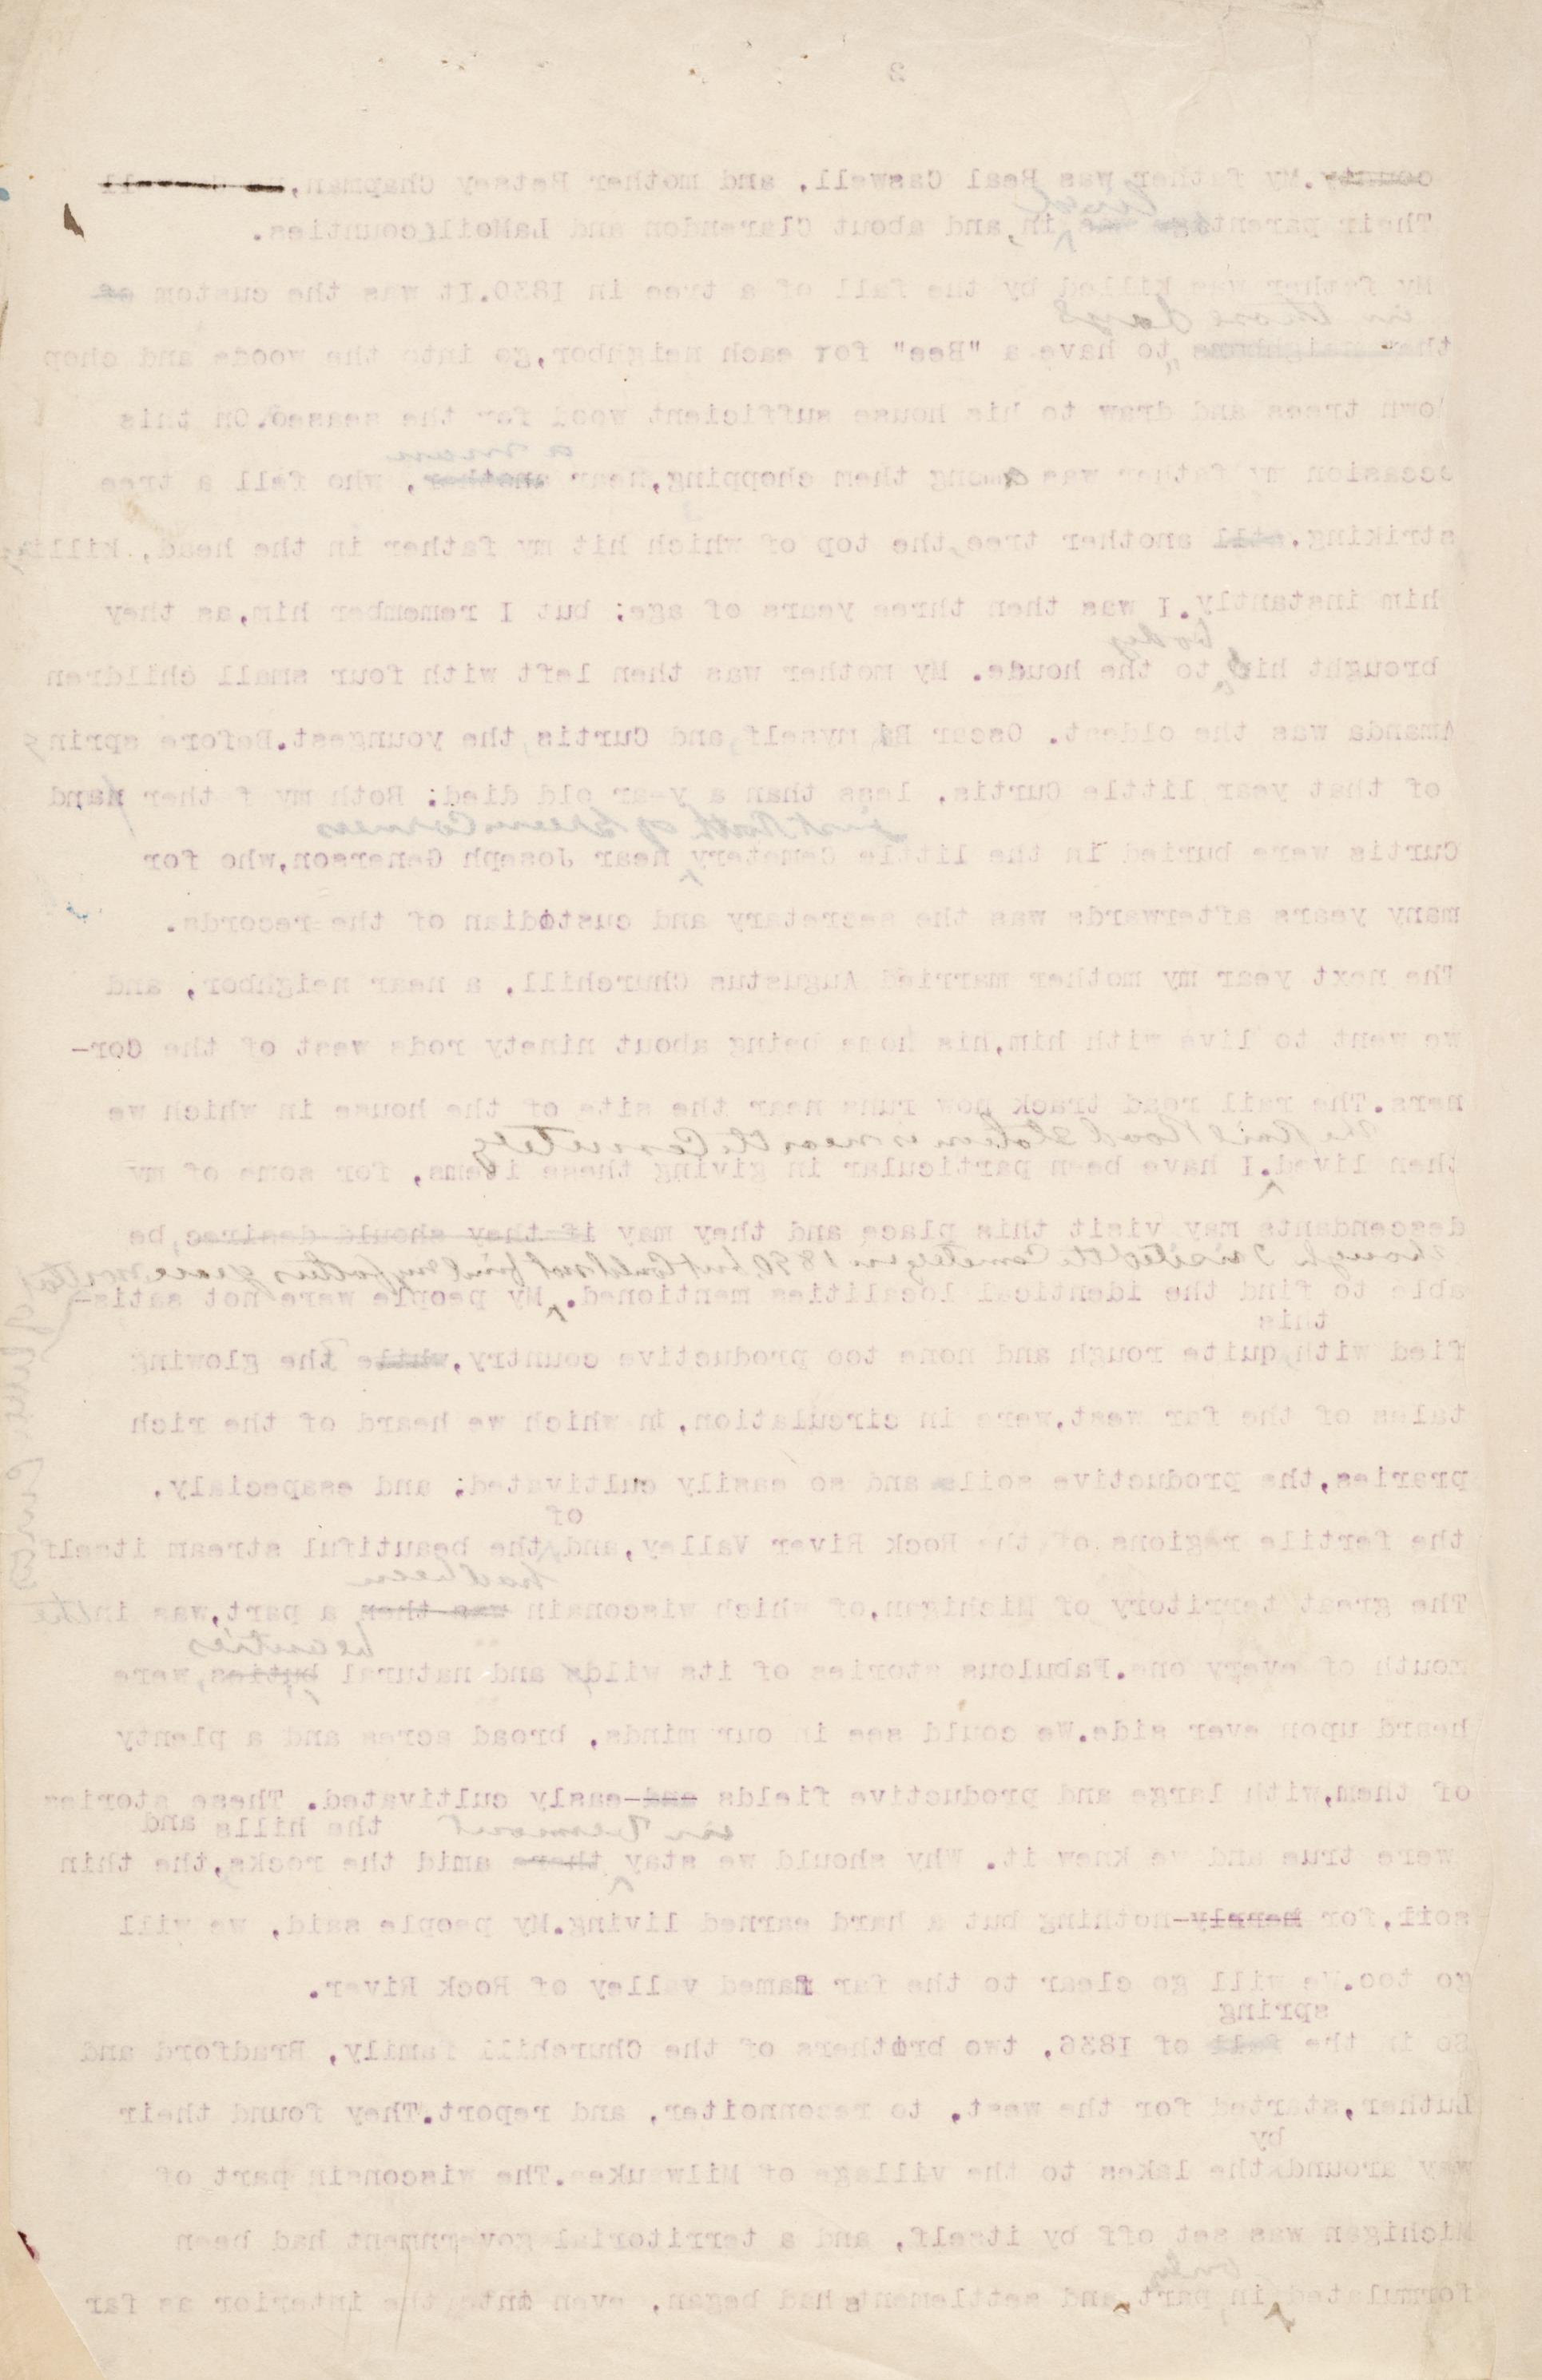 2
county. My father was Beal Caswell, and mother Betsey Chapman,
Their parents lived in, and about Clarendon and LaMoil counties.
My father was killed by the fall of a tree in 1830. It was the custom
in those days
to have a "Bee" for each neighbor, go into the woods and chop
down trees and draw to his house sufficient wood for the season. On this
a man
occasion my father was among them chopping, near another, who fell a tree
striking another tree, the top of which hit my father in the head, killing
him instantly. I was then three years of age; but I remember him, as they
body
brought his to the house. My mother was then left with four small children
Amanda was the oldest. Oscar B, myself, and Curtis, the youngest. Before spring
of that year little Curtis, less than a year old died: Both my father and
just North of Green Corners
Curtis were buried in the little Cemetery near Joseph Generson, who for
many years afterwards was the secretary and custodian of the records.
The next year my mother married Augustus Churchill, a near neighbor, and
we went to live with him, his home being about ninety rods west of the Cor-
ners. The rail road track now runs near the site of the house in which we
The Rail Road Station is near the Cemetery
then lived. I have been particular in giving these items, for some of my
descendants may visit this place and they may if they should desiree, be
though I visited the Cemetery in 1890, but Could not find my father's grave,
able to find the identical localities mentioned. My people were not satis-
this
fied with quite rough and none too productive country, while the glowing
tales of the far west, were in circulation, in which we heard of the rich
praries, the productive soils and so easily cultivated; and esapecialy,
of
the fertile regions of the Rock River Valley, and the beautiful stream itself
had been
The great territory of Michigan, of which wisconsin was then a part, was in the
beauties
mouth of evepy one. Fabulous stories of its wilds and natural buties, were
heard upon ever side. We could see in our minds, broad acres and a plenty
of them, with large and productive fields and easly cultivated. These stories
in Vermont the hills and
were true and we knew it. Why should we stay there amid the rocks, the thin
soil, for merely nothing but a hard earned living. My people said, we will
go too. We will go clear to the far famed valley of Rock River.
spring
So in the fall of 1836, two brothers of the Churchill family, Bradford and
Luther, started for the west, to reconnoiter, and report. They found their
by
way around the lakes to the village of Milwaukee. The wisconsin part of
Michigan was set off by itself, and a territorial government had been
only
formulated in part, and settlements had began, even into the interior as far